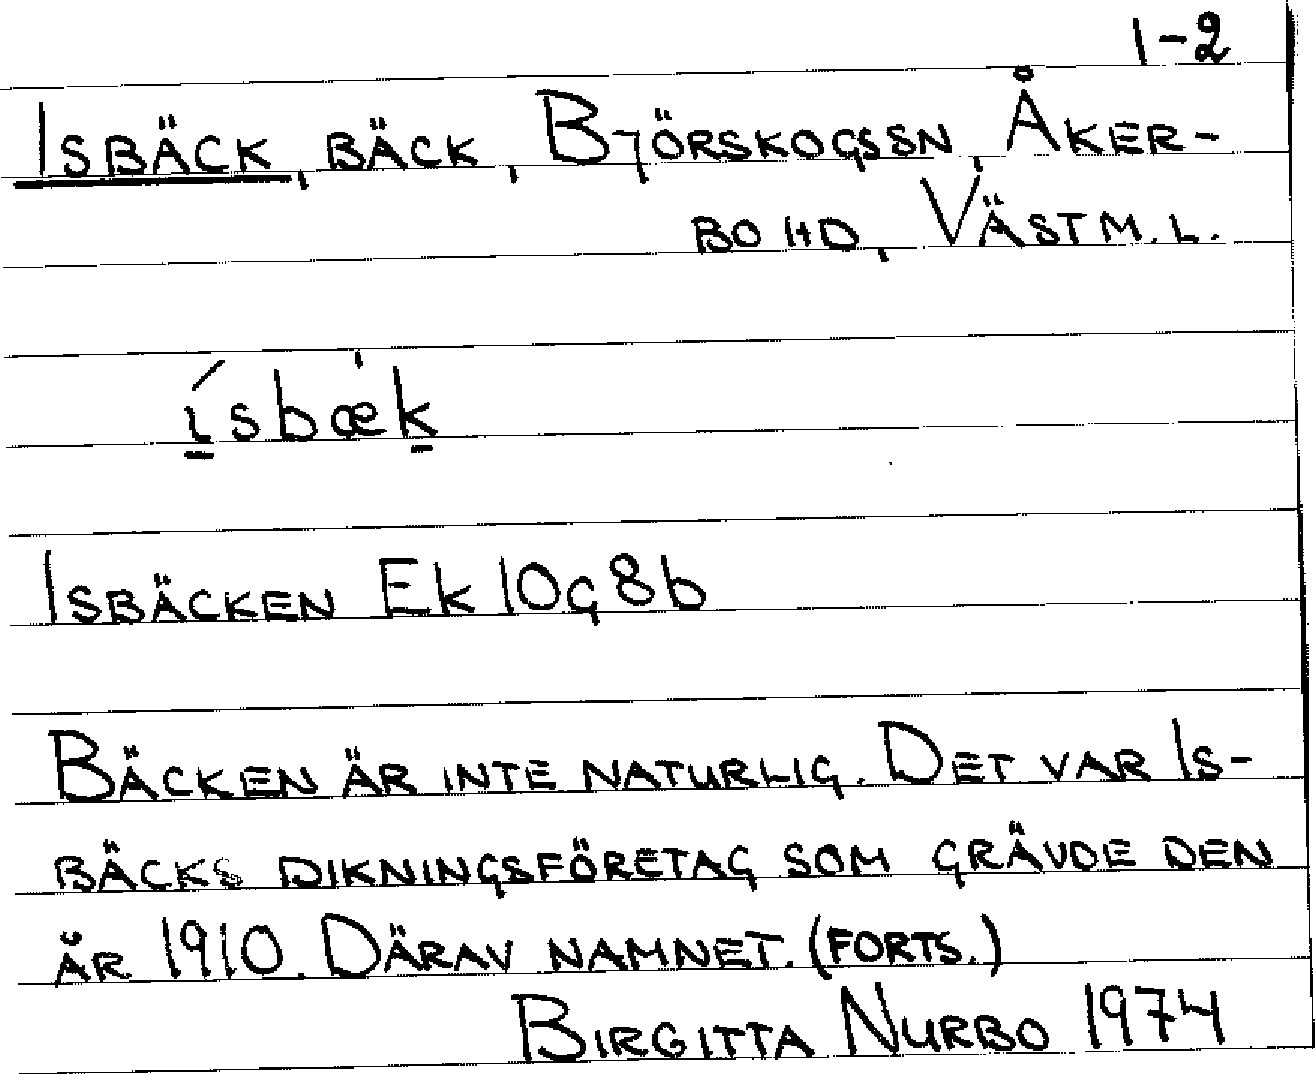 1-2
ISBÄCK, BÄCK, BJÖRSKOGSSN, ÅKER-
BO HD, VÄSTM. L.
ísbæ̀k
ISBÄCKEN Ek 10g8b
BÄCKEN ÄR INTE NATURLIG. DET VAR IS-
BÄCKS DIKNINGSFÖRETAG SOM GRÄVDE DEN
ÅR 1910. DÄRAV NAMNET. (FORTS.)
BIRGITTA NURBO 1974